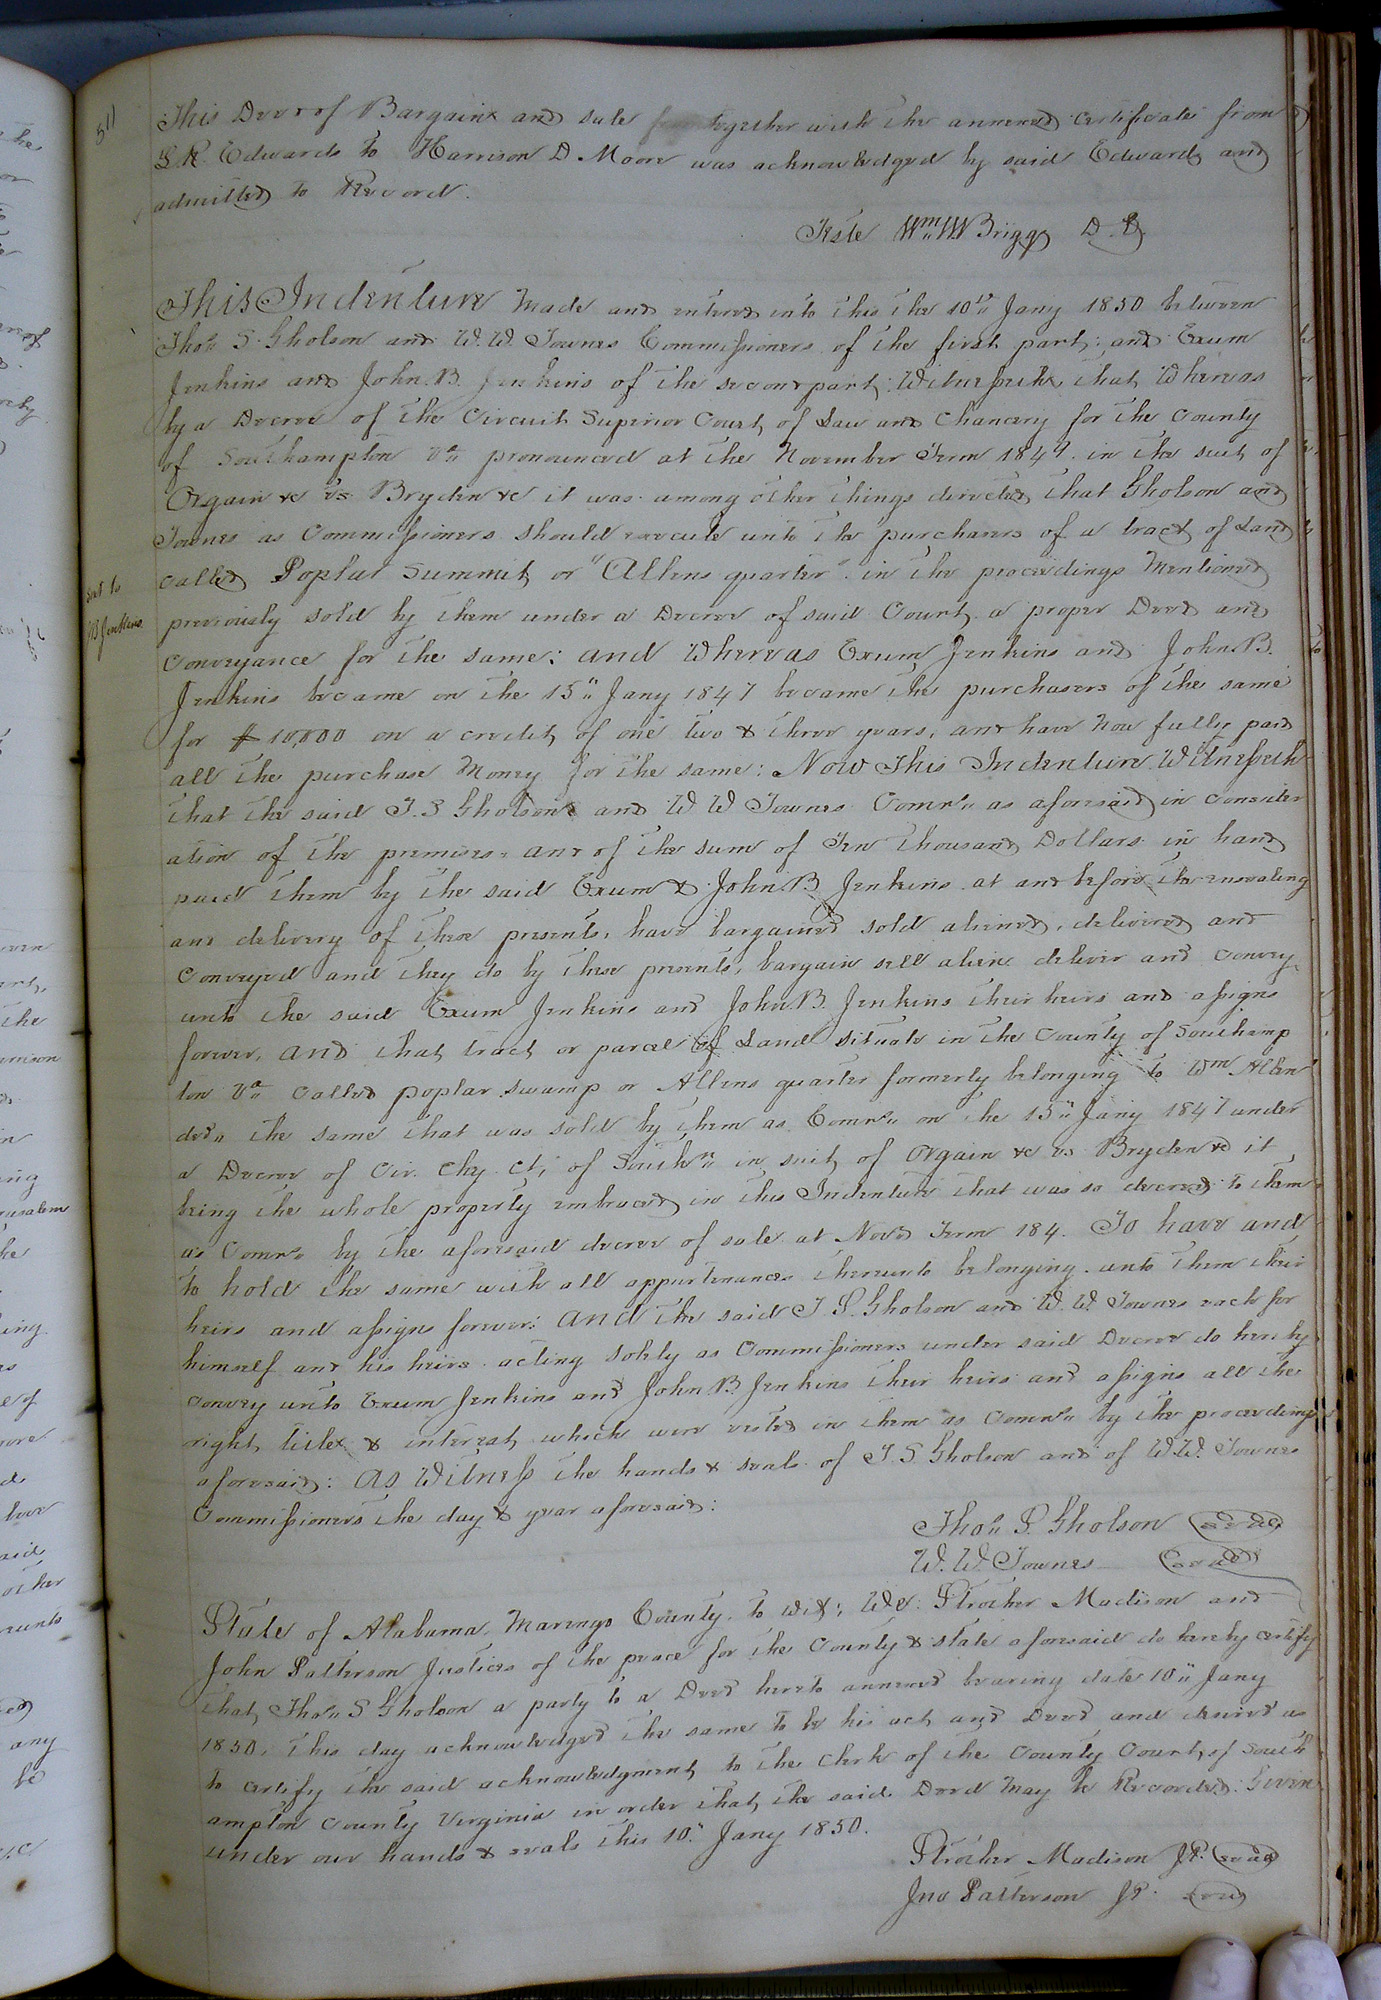 511
This Deed of Bargain and sale together with the annexed certificate from
L. R. Edwards to Harrison D Moore was acknowledged by said Edwards and
admitted to Record.
Teste Wm W Briggs D. C.
This Indenture Made and entered into this the 10th Jany 1850 between
Thos S. Gholson and W. W. Townes Commissioners of the first part; and Exum
Jenkins and John B. Jenkins of the second part: Witnesseth that Whereas
by a Decree of the Circuit Superior Court of Law and Chancery for the County
of Southampton Va pronounced at the November Term 1849 in the suit of
Orgain &c vs Bryden &c it was among other things directed that Gholson and
Townes as Commissioners should execute unto the purchasers of a tract of Land
called Poplar Summit or "Allens quarter" in the proceedings Mentioned
Sent to
J B Jenkins
previously sold by them under a Decree of said Court a proper Deed and
Conveyance for the same: and Whereas Exum Jenkins and John B.
Jenkins became on the 15" Jany 1847 became the purchasers of the same
for $10,000 on a credit of one two & three years, and have now fully paid
all the purchase Money for the same: Now This Indenture Witnesseth
that the said T. S Gholson and W W Townes Comrs as aforesaid in consider
ation of the premises and of the sum of Ten Thousand Dollars in hand
paid them by the said Exum & John B Jenkins at and before the ensealing
and delivery of these presents, have bargained sold aliened, delivered and
Conveyed and they do by these presents, bargain sell alien deliver and convey
unto the said Exum Jenkins and John B. Jenkins their heirs and assigns
forever, and that tract or parcel of Land situate in the County of Southamp
ton Va called poplar swamp or Allens quarter formerly belonging to Wm Allen
decd the same that was sold by them as Comrs on the 15" Jany 1847 under
a Decree of Cir. Chy. Ct; of Southn in suit of Orgain &c vs Bryden &c it
being the whole property embraced in this Indenture that was so decreed to them
as Comrs by the aforesaid decree of sale at Novr Term 184. To have and
to hold the same with all appurtenances thereunto belonging unto them their
heirs and assigns forever: and the said T. S. Gholson and W. W. Townes each for
himself and his heirs acting solely as Commissioners under said Decree do hereby
convey unto Exum Jenkins and John B Jenkins their heirs and assigns all the
right title & interest which were vested in them as Comrs by the proceedings
aforesaid: As Witness the hands & seals of T S Gholson and of W. W. Townes
Commissioners the day & year aforesaid:
Thos S. Gholson seal
W. W Townes seal
State of Alabama Marengo County, to wit; We Strother Madison and
John Patterson Justices of the peace for the County & state aforesaid do hereby certify
that Thos S Gholson a party to a Deed hereto annexed bearing date 10" Jany
1850, this day acknowledged the same to be his act and Deed and desired us
to certify the said acknowledgment to the Clerk of the County Court of South
ampton County Virginia in order that the said Deed May be Recorded: Given
under our hands & seals this 10" Jany 1850.
Strother Madison JP. seal
Jno Patterson JP. seal